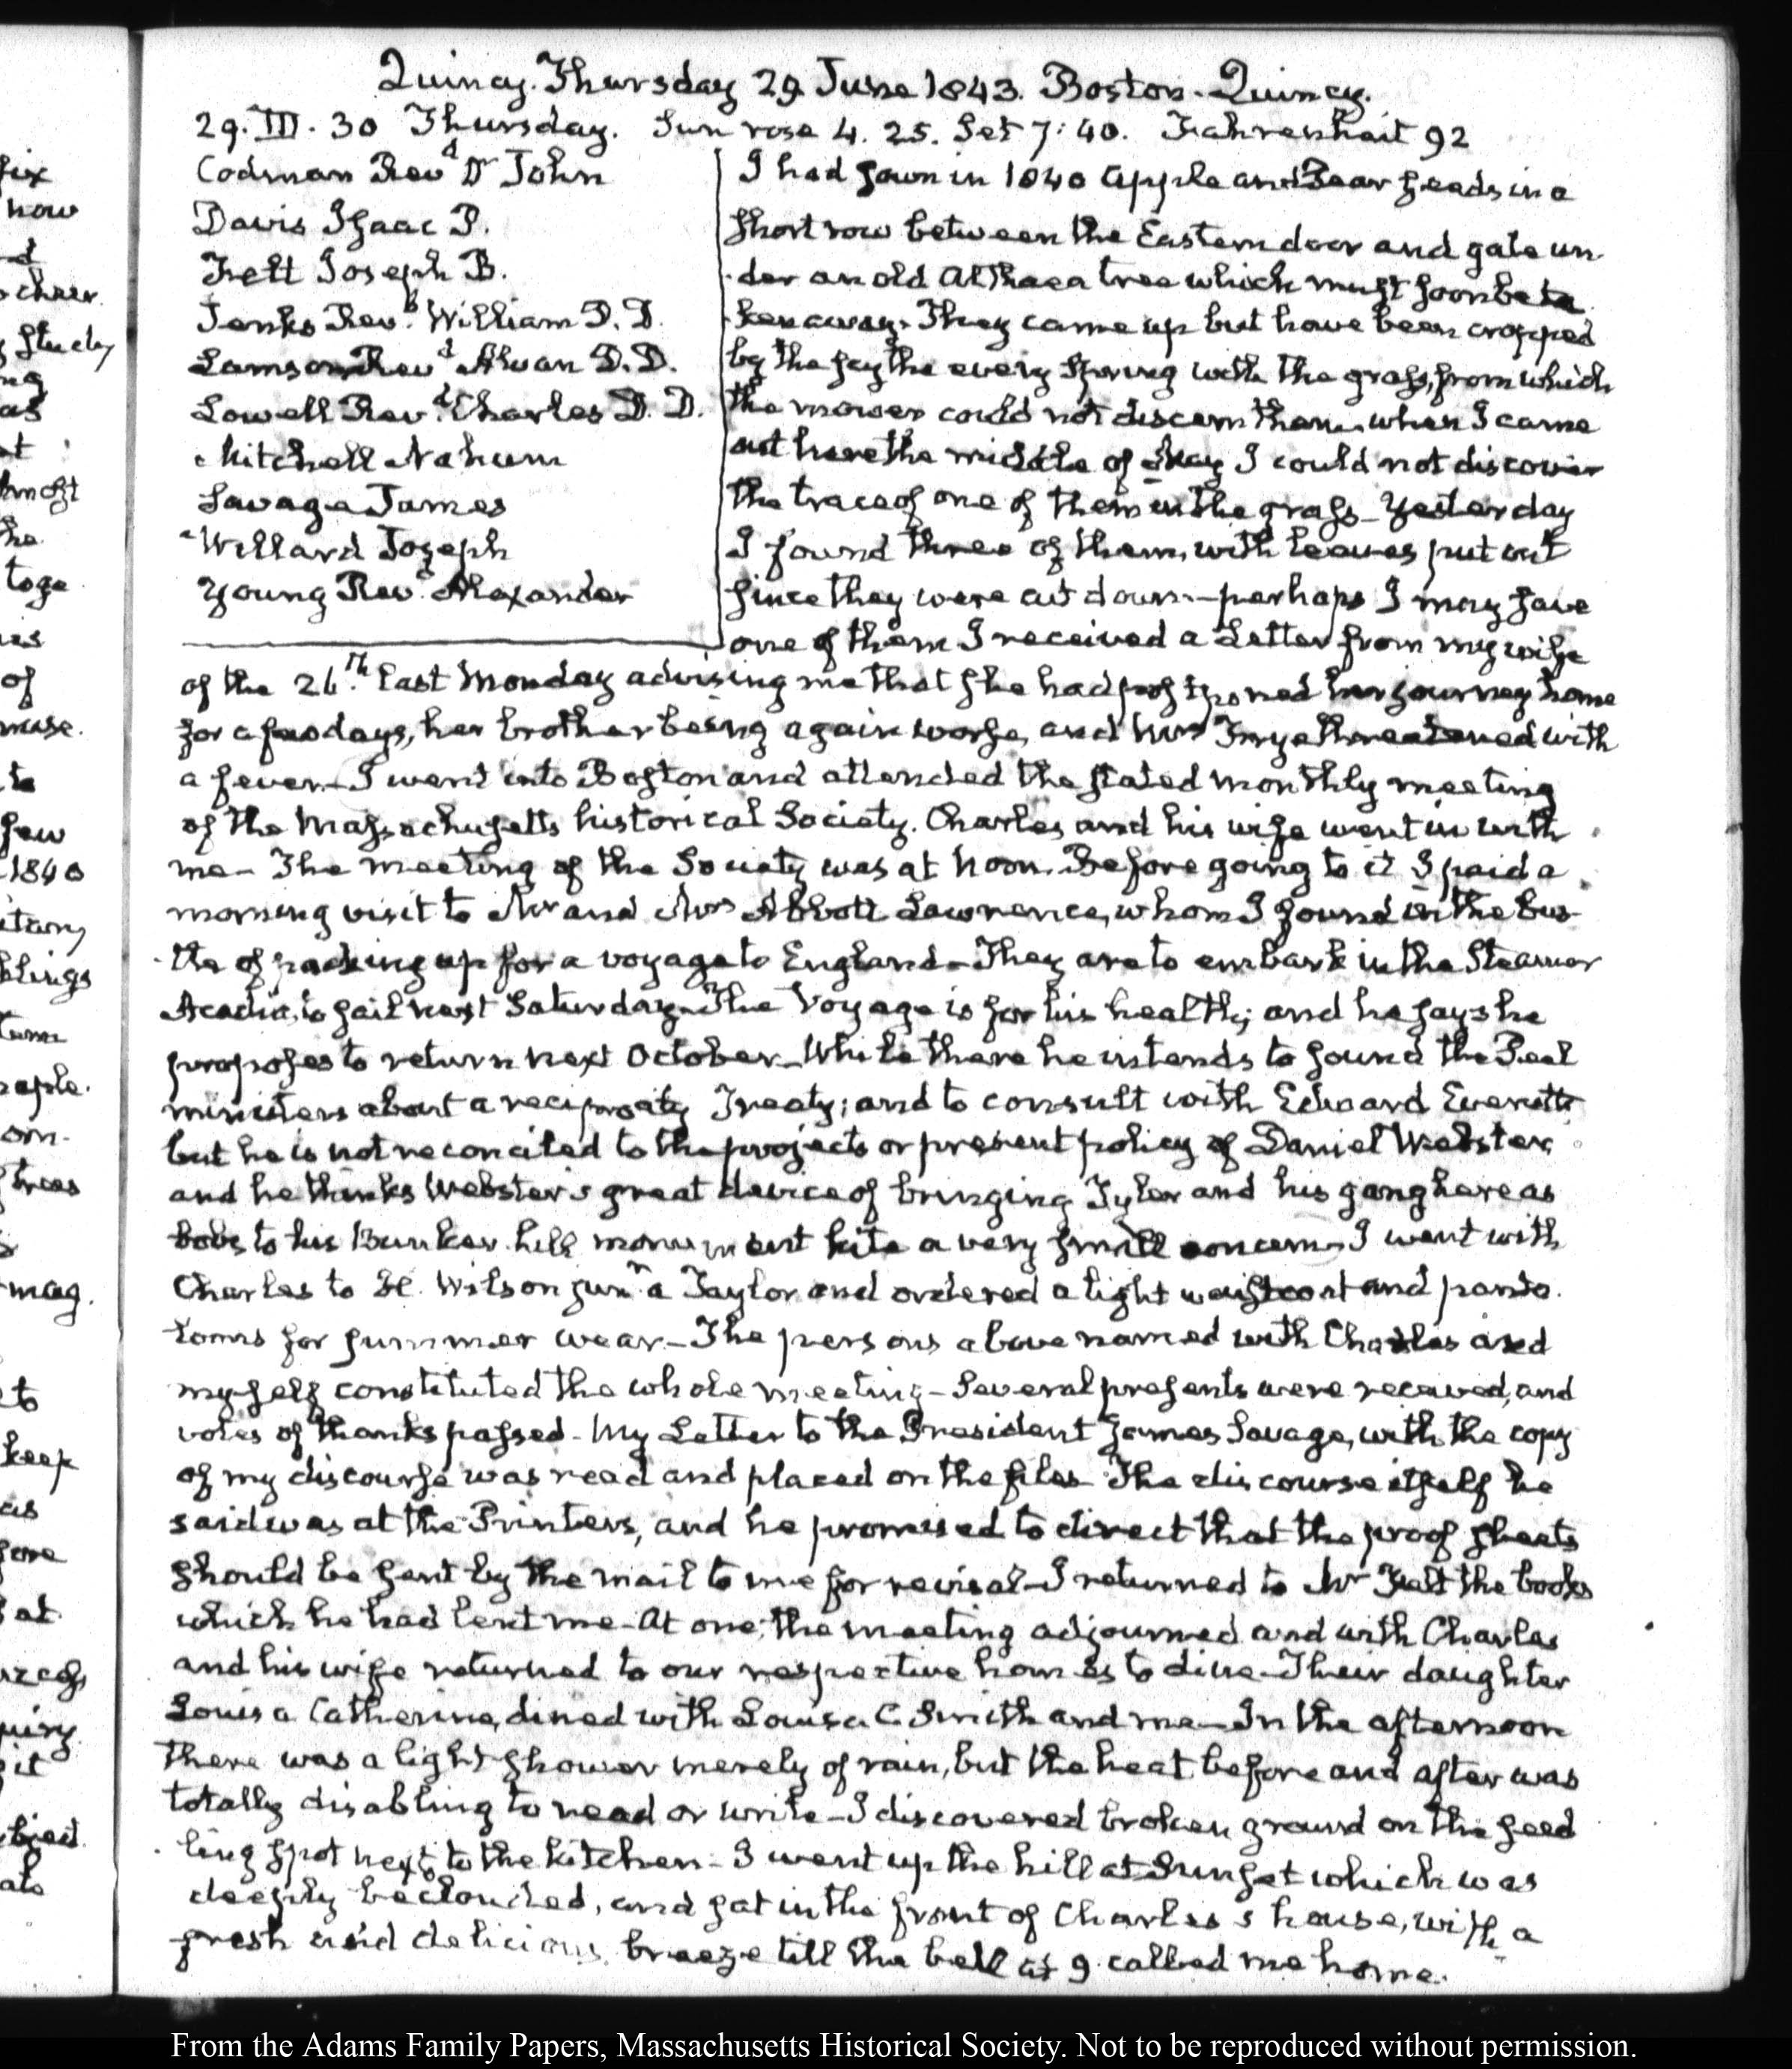 Quincy. Thursday 29 June 1843. Boston-Quincy.
29. III. 30 Thursday. Sun rose 4. 25. Set 7: 40. Fahrenheit 92
Codman Revd Dr John
Davis Isaac P.
Felt Joseph B.
Jenks Revd. William D. D.
Lamson Revd Alvan D. D.
Lowell Revd. Charles D. D.
Mitchell Nahum
Savage James
Willard Joseph
Young Revd. Alexander
I had sown in 1840 Apple and Pear seeds in a
short row between the Eastern door and gate un-
der an old Althaea tree which must soon be ta
ken away. They came up but have been cropped
by the scythe every Spring with the grass, from which
the mower could not discern them. when I came
out here the middle of May I could not discover
the trace of one of them in the grass- Yesterday
I found three of them, with leaves put out
since they were cut down- perhaps I may save
one of them I received a Letter from my wife
of the 26th. last Monday advising me that she had postponed her journey home
for a few days, her brother being again worse, and Mrs Frye threatened with
a fever- I went into Boston and attended the stated monthly meeting
of the Massachusetts historical Society. Charles, and his wife went in with
me- The meeting of the Society was at Noon. Before going to it I paid a
morning visit to Mr and Mrs Abbott Lawrence, whom I found in the bus-
tle of packing up for a voyage to England- They are to embark in the Steamer
Acadia, to sail next Saturday- The Voyage is for his health; and he says he
proposes to return next October- While there he intends to sound the Peel
ministers about a reciprocity Treaty; and to consult with Edward Everett
but he is not reconciled to the projects or present policy of Daniel Webster,
and he thinks Webster's great device of bringing Tyler and his gang here as
bobs to his Bunker-hill monument kite a very small concern- I went with
Charles to H. Wilson junr. a Taylor and ordered a light waistcoat and panta-
loons for summer wear- The persons above named with Charles and
myself constituted the whole meeting- Several presents were received, and
votes of thanks passed- My Letter to the President James Savage, with the copy
of my discourse was read and placed on the files- The discourse itself he
said was at the Printers, and he promised to direct that the proof sheets
should be sent by the mail to me for revisal- I returned to Mr Felt the books
which he had lent me- At one, the meeting adjourned and with Charles
and his wife returned to our respective homes to dine- Their daughter
Louisa Catherine, dined with Louisa C. Smith and me- In the afternoon
there was a light shower merely of rain, but the heat before and after was
totally disabling to read or write- I discovered broken ground on the seed
ling spot next to the kitchen- I went up the hill at Sunset which was
deeply beclouded, and sat in the front of Charles's house, with a
fresh and delicious breeze till the bell at 9 called me home.
From the Adams Family Papers, Massachusetts Historical Society. Not to be reproduced without permission.